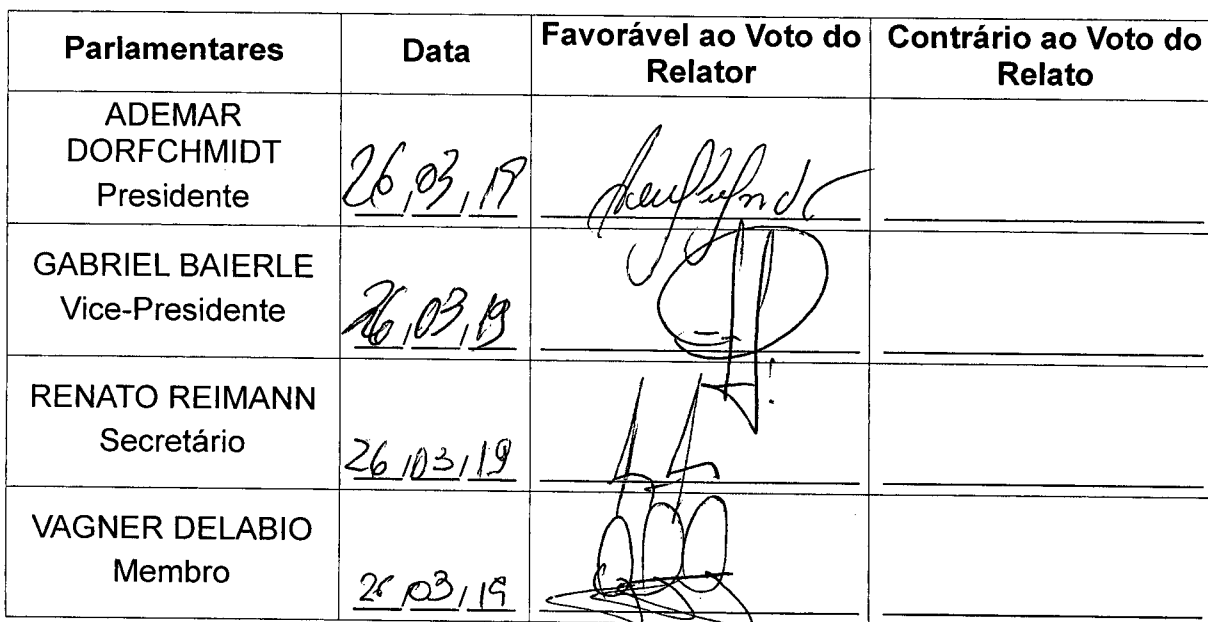 Parlamentares Data Favorável ao Voto do Relator Contrário ao Voto do Relato
ADEMAR
DORFCHMIDT
Presidente 26,03,19
GABRIEL BAIERLE
Vice-Presidente 26,03,19
RENATO REIMANN
Secretário 26,03,19
VAGNER DELABIO
Membro 26,03,19